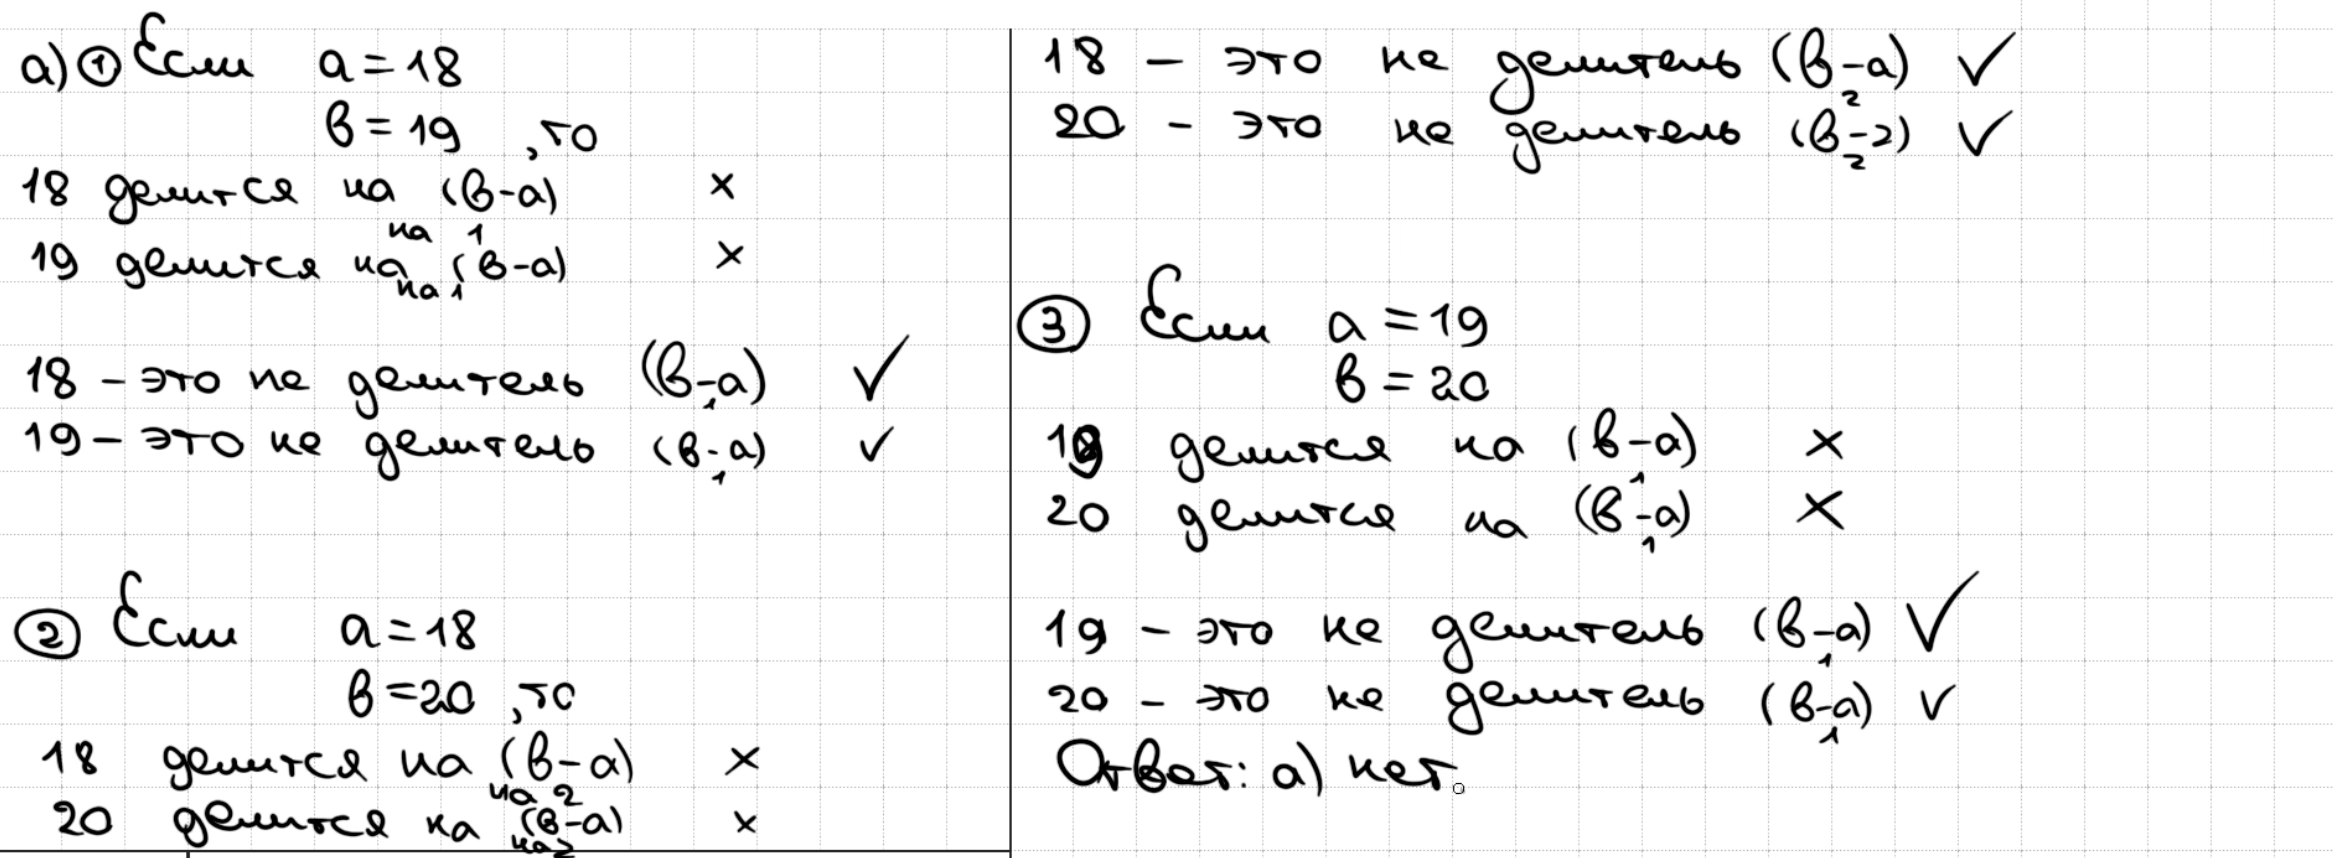 а) ① Если a = 18
в = 19 , то
18 делится на (в-а) ×
на 1
19 делится на (в-а) ×
на 1
18 – это не делитель (в-а) ✓
1
19 – это не делитель (в-а) ✓
1
② Если а = 18
в = 20 , то
18 делится на (в-а) ×
на 2
20 делится на (в-а) ×
на 2
18 – это не делитель (в-а) ✓
2
20 – это не делитель (в-2) ✓
2
③ Если а = 19
в = 20
19 делится на (в-а) ×
1
20 делится на (в-а) ×
1
19 – это не делитель (в-а) ✓
1
20 – это не делитель (в-а) ✓
1
Ответ: а) нет.